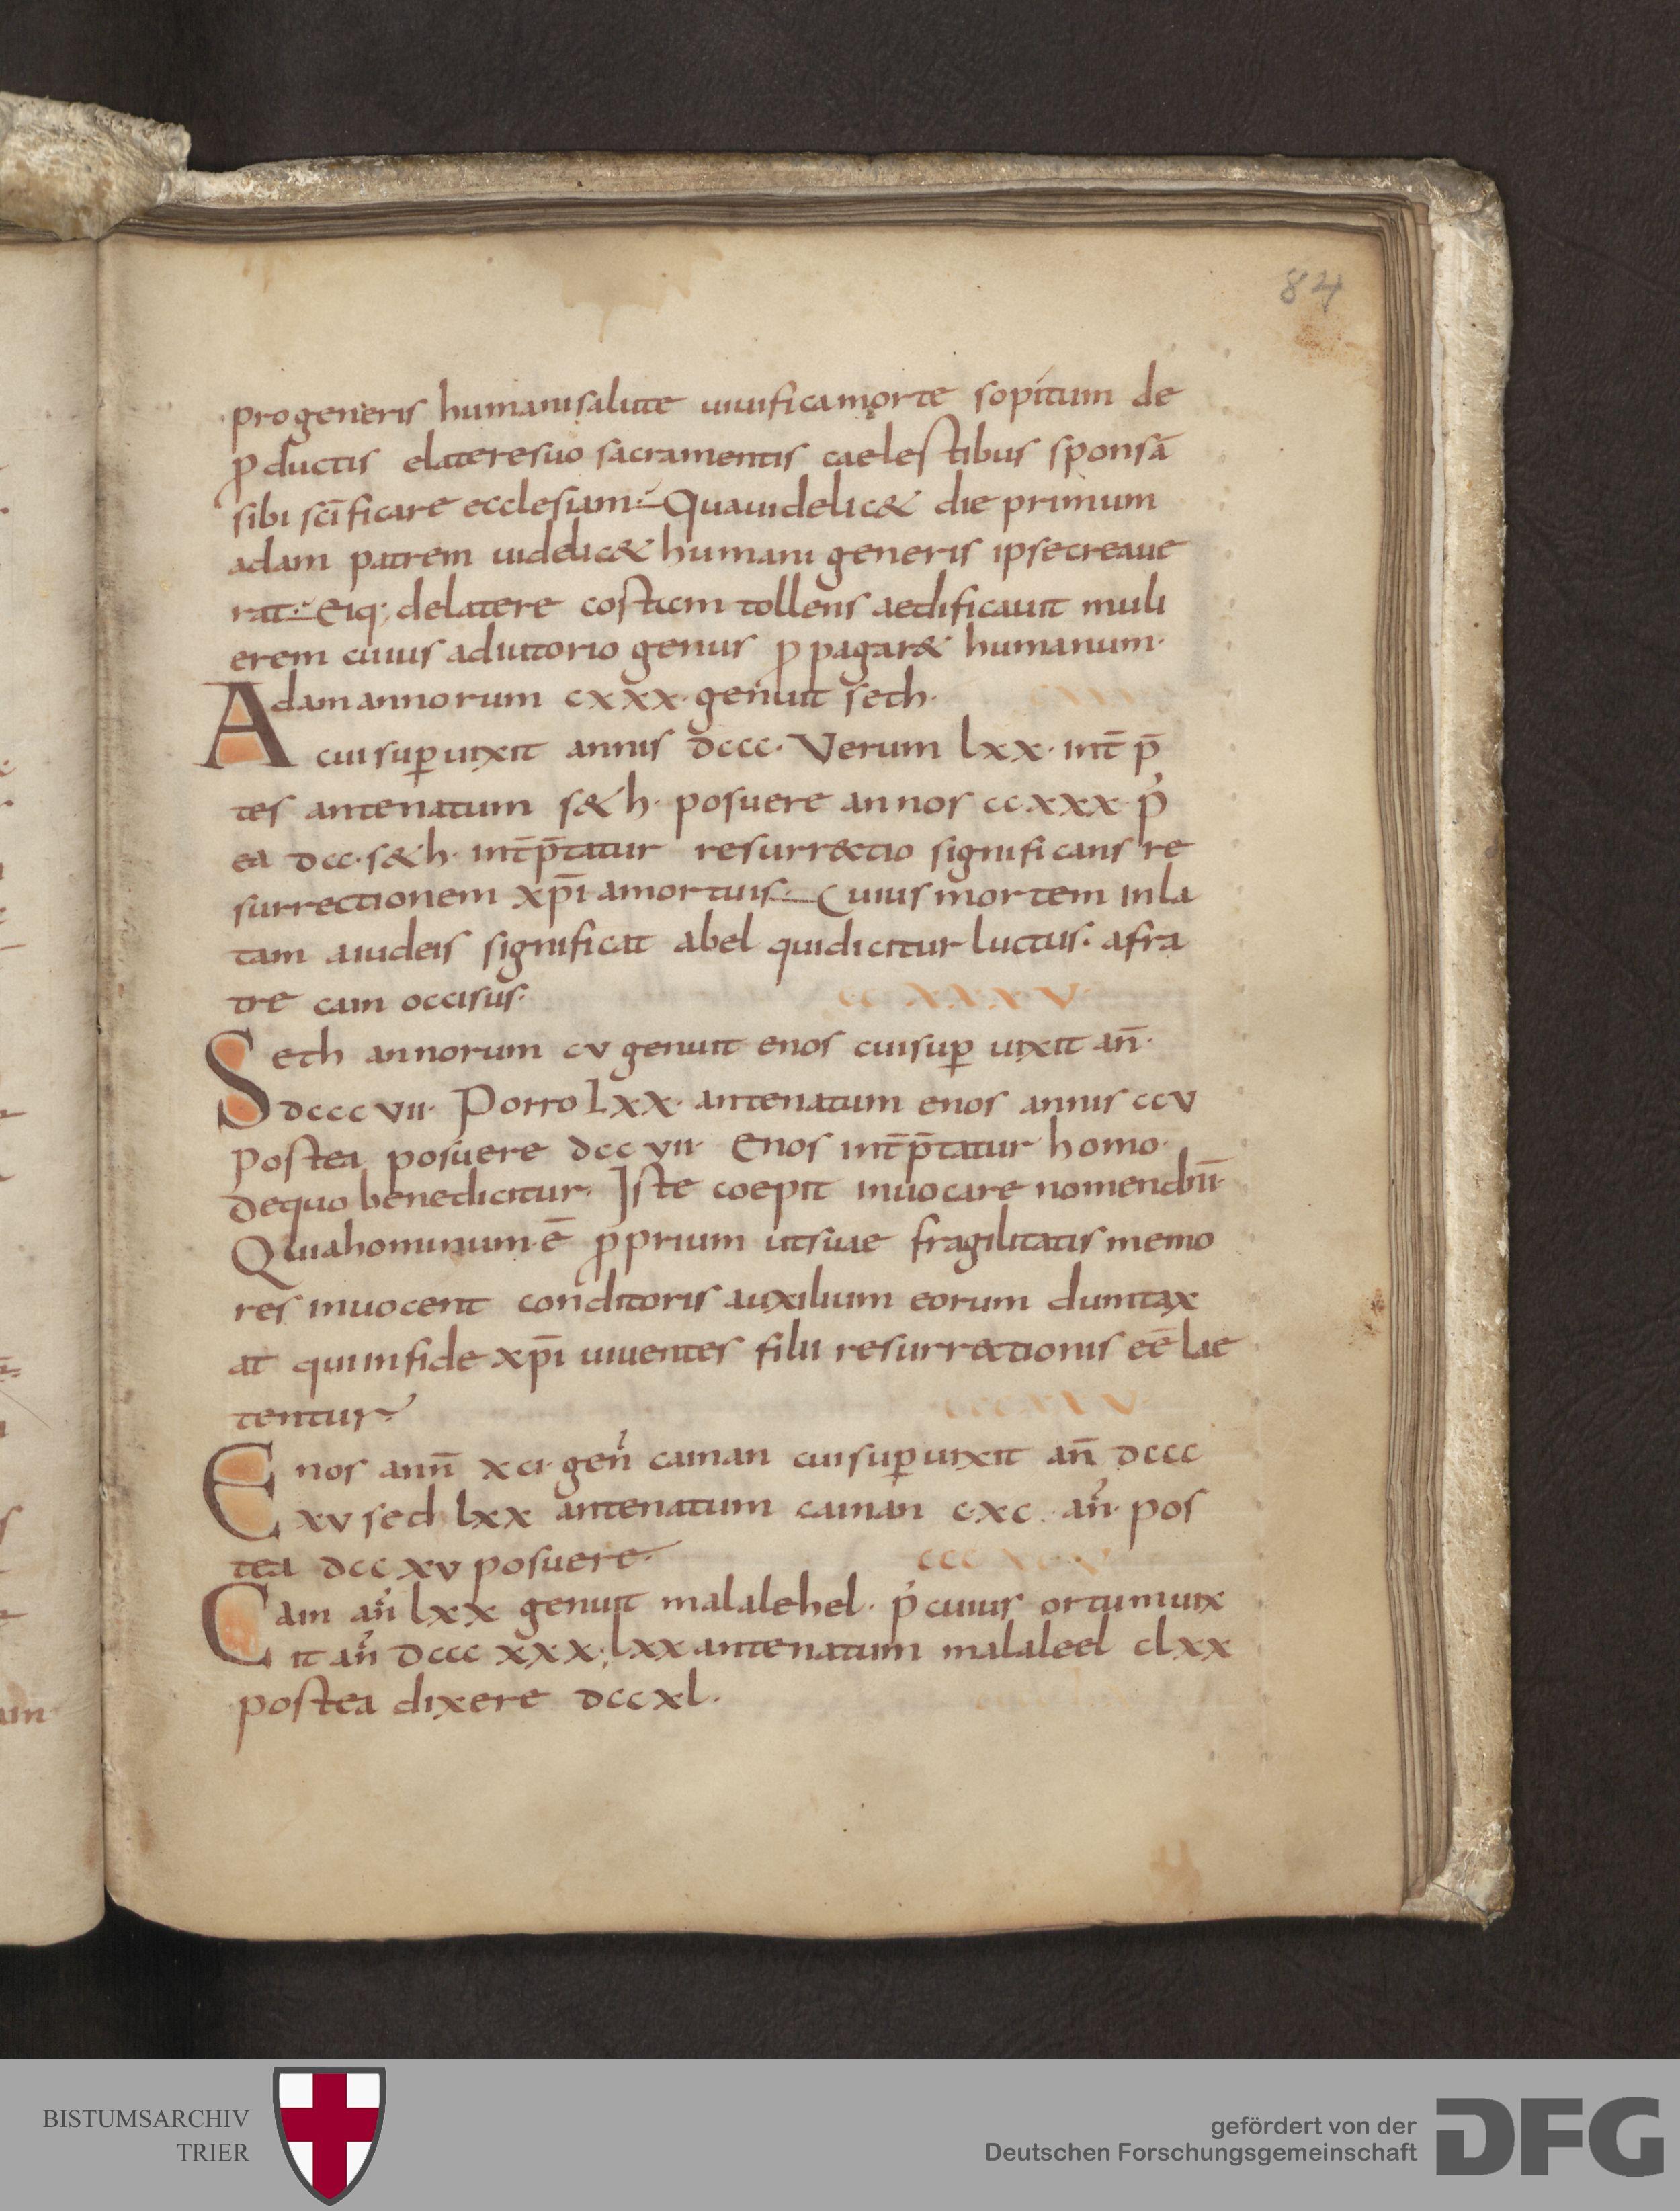 84
progeneris humanisalute uiuificamorte sopitum de
p̱ductis elateresuo sacramentis caelestibus sponsā
sibi scīficare ecclesiam:— Quauidelic& die primum
adam patrem uidelic& humani generis ipsecreaue
rat:— Eiq; delatere costam tollens aedificauit muli
erem cuius adiutorio genus ꝓpagar& humanum·
Adamannorum cxxx· genuit seth·
cuisuꝑuixit annis dccc· Verum lxx· int̄p̄
tes antenatum s&h· posuere annos ccxxx· p̓
ea dcc· s&h· int̄p̄tatur resurrectio significans re
surrectionem xp̄i amortuis:— Cuius mortem inla
tam aiudeis significat abel quidicitur luctus· afra
tre cain occisus·
Seth annorum cv genuit enos cuisuꝑ uixit an̄·
dcccvii· Porro lxx· antenatum enos annis ccv
postea posuere dccvii· Enos int̄p̄tatur homo·
dequo benedicitur· Iste coepit inuocare nomendn̄i·
Quiahominum·ē ꝓprium utsuae fragilitatis memo
res inuocent conditoris auxilium eorum dumtax
at quiinfide xp̄i uiuentes filii resurrectionis eē lae
tentur·
Enos ann̄ xci· gen̓ cainan cuisuꝑuixit an̄ dccc
xv sed lxx antenatum cainan cxc· an̓· pos
tea dccxv posuere·
Cain an̓ lxx genuit malalehel· p̓ cuius ortumuix
it an̓ dcccxxx· lxx antenatum malaleel clxx
postea dixere dccxl·
BISTUMSARCHIV
TRIER
gefördert von der
Deutschen Forschungsgemeinschaft
DFG